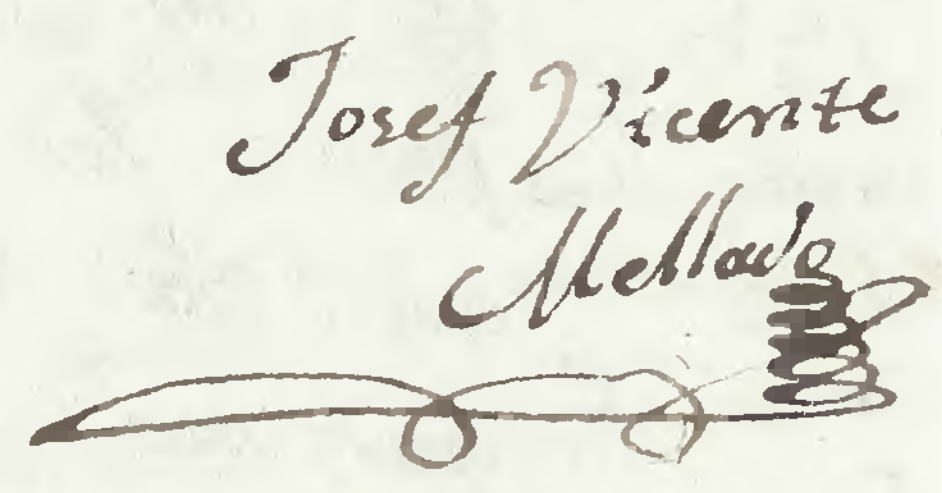 Josef Vicente
Mellado